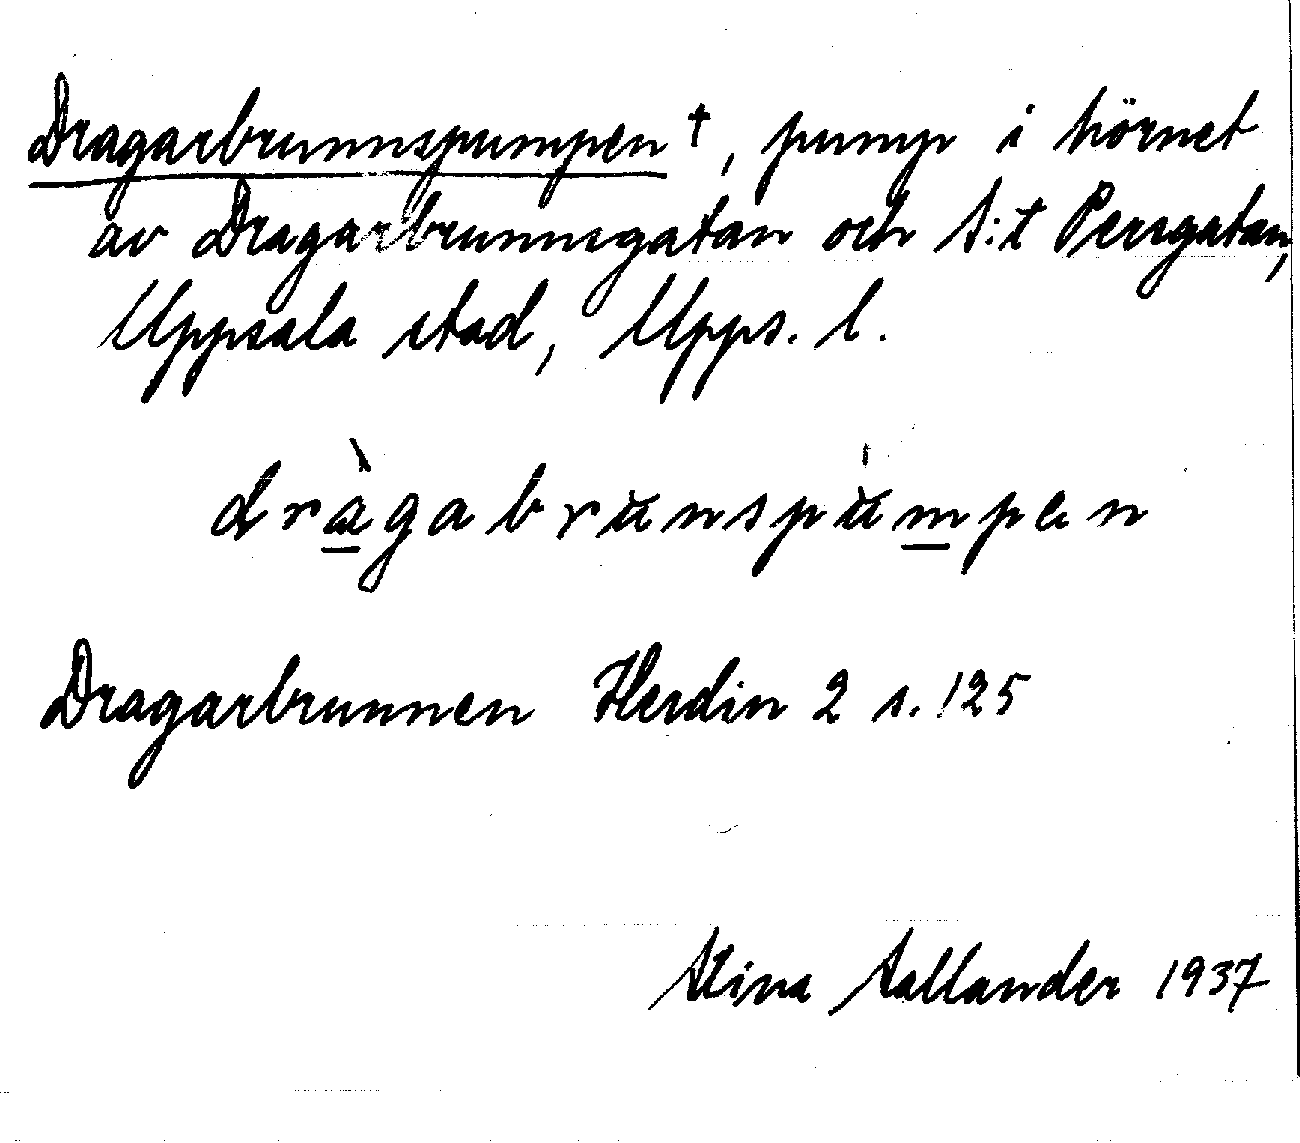 Dragarbrunnspumpen †, pump i hörnet
av Dragarbrunnsgatan och S:t Persgatan,
Uppsala stad, Upps. l.
dràgabrunspumpen
Dragarbrunnen Herdin 2 s. 125
Stina Sallander 1937